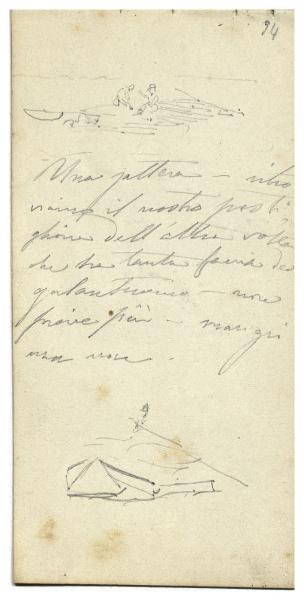 94
Una zattera – ritro
viamo il nostro posti
glione dell'altra volta
che ha tanta faccia da
galantuomo – non
piove più – mangi
una